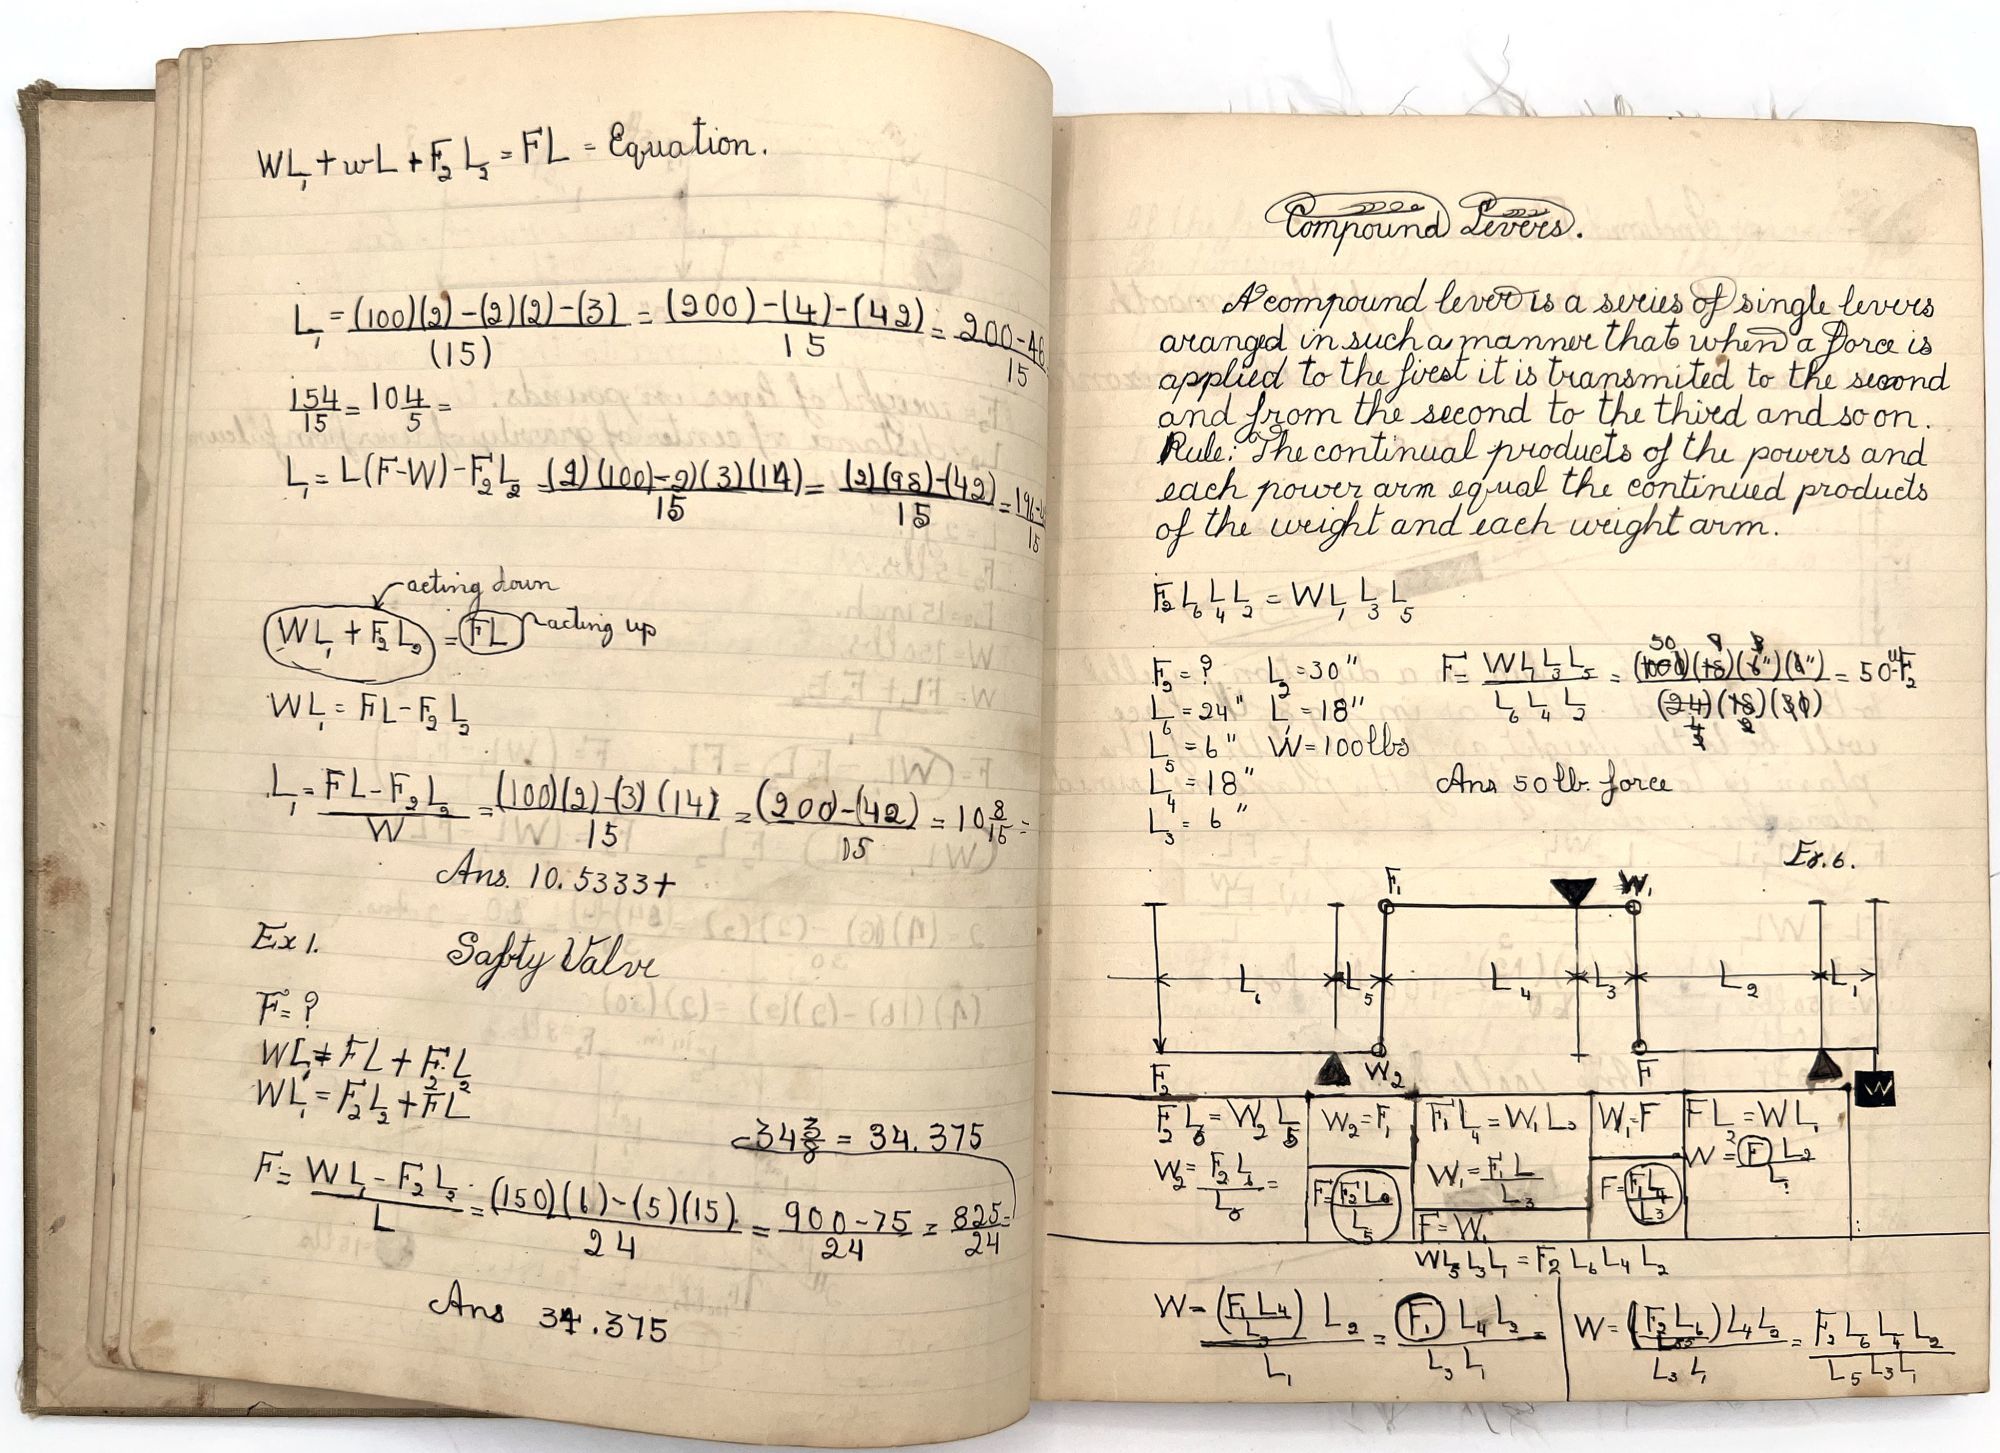 WL₁ + wL + F₂L₂ = FL = Equation.
L₁ = (100)(2) - (2)(2) - (3) / (15) = (200) - (4) - (42) / 15 = 200 - 46 / 15
154/15 = 10 4/5 =
L₁ = L(F-W) - F₂L₂ = (2)(100) - 2)(3)(14) / 15 = (2)(98) - (42) / 15 = 196 - / 15
acting down
WL₁ + F₂L₂ = FL acting up
WL₁ = FL - F₂L₂
L₁ = FL - F₂L₂ / W = (100)(2) - (3)(14) / 15 = (200 - (42) / 15 = 10 8/15 =
Ans. 10.5333+
Ex 1. Safty Valve
F = ?
WL₁ = FL + F₂L₂
WL₁ = F₂L₂ + FL
34 3/8 = 34.375
F = WL₁ - F₂L₂ / L = (150)(6) - (5)(15) / 24 = 900 - 75 / 24 = 825 / 24 =
Ans 34.375
Compound Levers.
A compound lever is a series of single levers
aranged in such a manner that when a force is
applied to the first it is transmited to the second
and from the second to the third and so on.
Rule: The continual products of the powers and
each power arm equal the continued products
of the weight and each weight arm.
F₂L₆L₄L₂ = WL₁L₃L₅
F₂ = ? L₂ = 30" F = WL₁L₃L₅ / L₆L₄L₂ = (100)(18)(6")(6") / (24)(18)(30) = 50 F₂
L₆ = 24" L₁ = 18"
L₅ = 6" W = 100 lbs
L₄ = 18" Ans 50 lb. force
L₃ = 6"
Ex. 6.
F₁ W₁
L₆ L₅ L₄ L₃ L₂ L₁
F₂ W₂ F W
F₂L₆ = W₂L₅ W₂ = F₁ F₁L₄ = W₁L₃ W₁ = F FL₂ = WL₁
W₂ = F₂L₆ / L₅ = F = F₂L₆ / L₅ W₁ = F₁L / L₃ F = F₁L₄ / L₃ W = F L₂ / L₁
F = W₁
WL₅L₃L₁ = F₂L₆L₄L₂
W = (F₁L₄ / L₃) L₂ / L₁ = F₁ L₄L₂ / L₃L₁ = W = (F₂L₆ / L₅) L₄L₂ / L₃L₁ = F₂L₆L₄L₂ / L₅L₃L₁